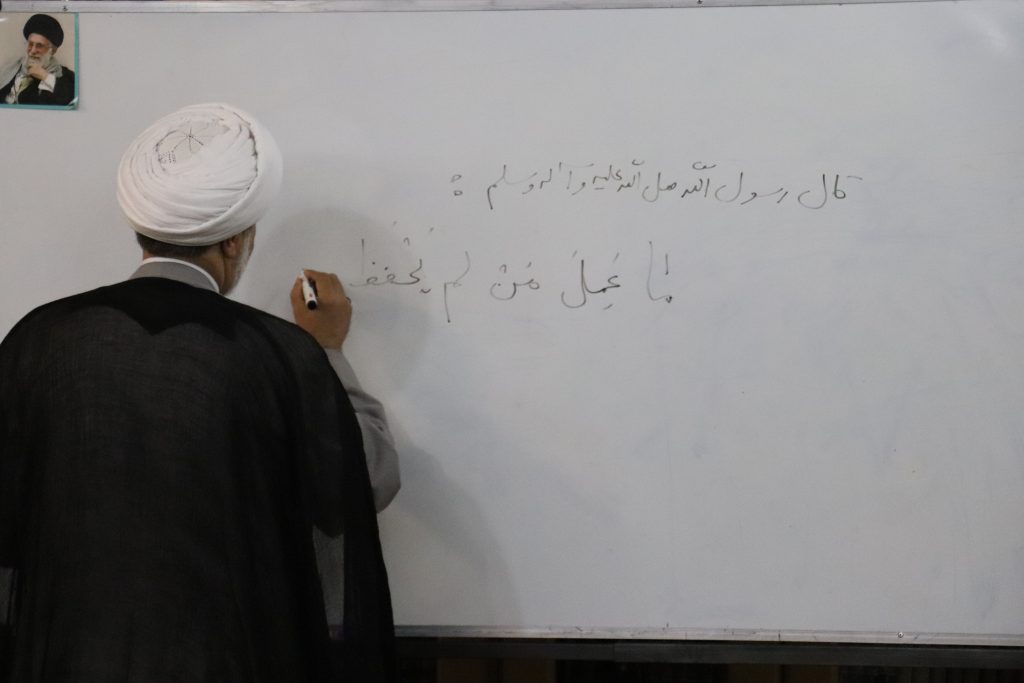 قال رسول الله صلی الله علیه وآله وسلم :
ما عَمِلَ مَنْ لم یَحْفَظ